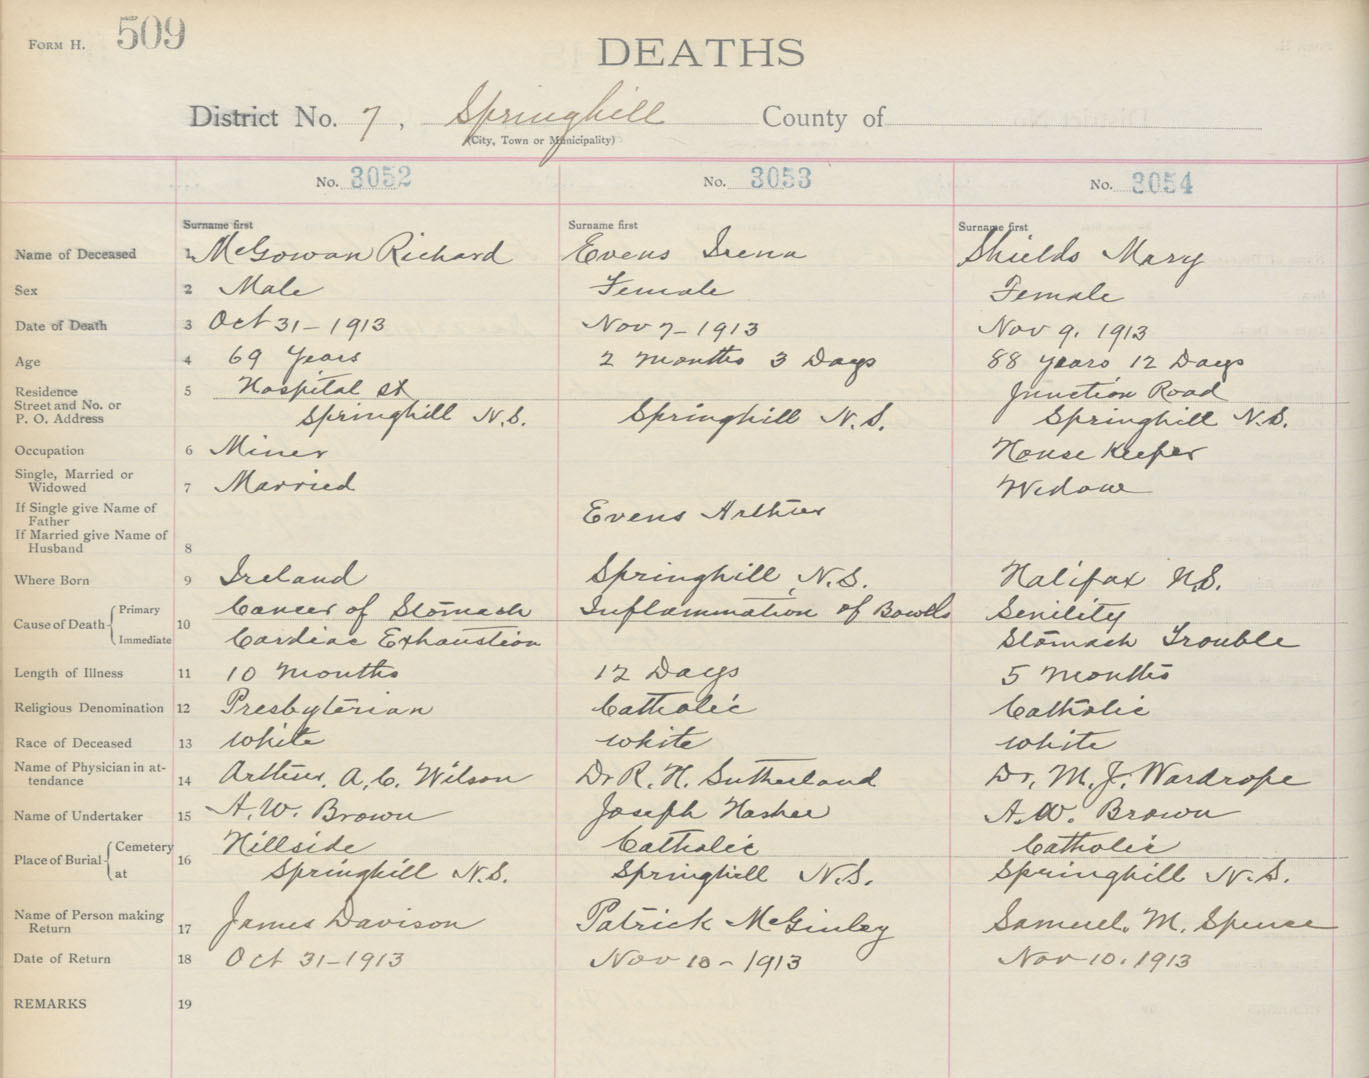 FORM H. 509
DEATHS
District No. 7, Springhill County of
(City, Town or Municipality)
No. 3052 No. 3053 No. 3054
Surname first Surname first Surname first
Name of Deceased 1 McGowan Richard Evens Irena Shields Mary
Sex 2 Male Female Female
Date of Death 3 Oct 31-1913 Nov 7-1913 Nov 9. 1913
Age 4 69 Years 2 Months 3 Days 88 years 12 Days
Residence 5 Hospital St Junction Road
Street and No. or
P. O. Address Springhill N.S. Springhill N.S. Springhill N.S.
Occupation 6 Miner House Keeper
Single, Married or
Widowed 7 Married Widow
If Single give Name of
Father Evens Arthur
If Married give Name of
Husband 8
Where Born 9 Ireland Springhill, N.S. Halifax N.S.
Cause of Death 10 Primary Cancer of Stomach Inflammation of Bowells Senility
Immediate Cardiac Exhaustion Stomach Trouble
Length of Illness 11 10 Months 12 Days 5 Months
Religious Denomination 12 Presbyterian Catholic Catholic
Race of Deceased 13 White White White
Name of Physician in at-
tendance 14 Arthur. A. C. Wilson Dr R. H. Sutherland Dr. M. J. Wardrope
Name of Undertaker 15 A. W. Brown Joseph A. W. Brown
Place of Burial 16 Cemetery Hillside Catholic Catholic
at Springhill N.S. Springhill N.S. Springhill N.S.
Name of Person making
Return 17 James Davison Patrick McGinley Samuel. M. Spence
Date of Return 18 Oct 31-1913 Nov 10-1913 Nov 10. 1913
REMARKS 19